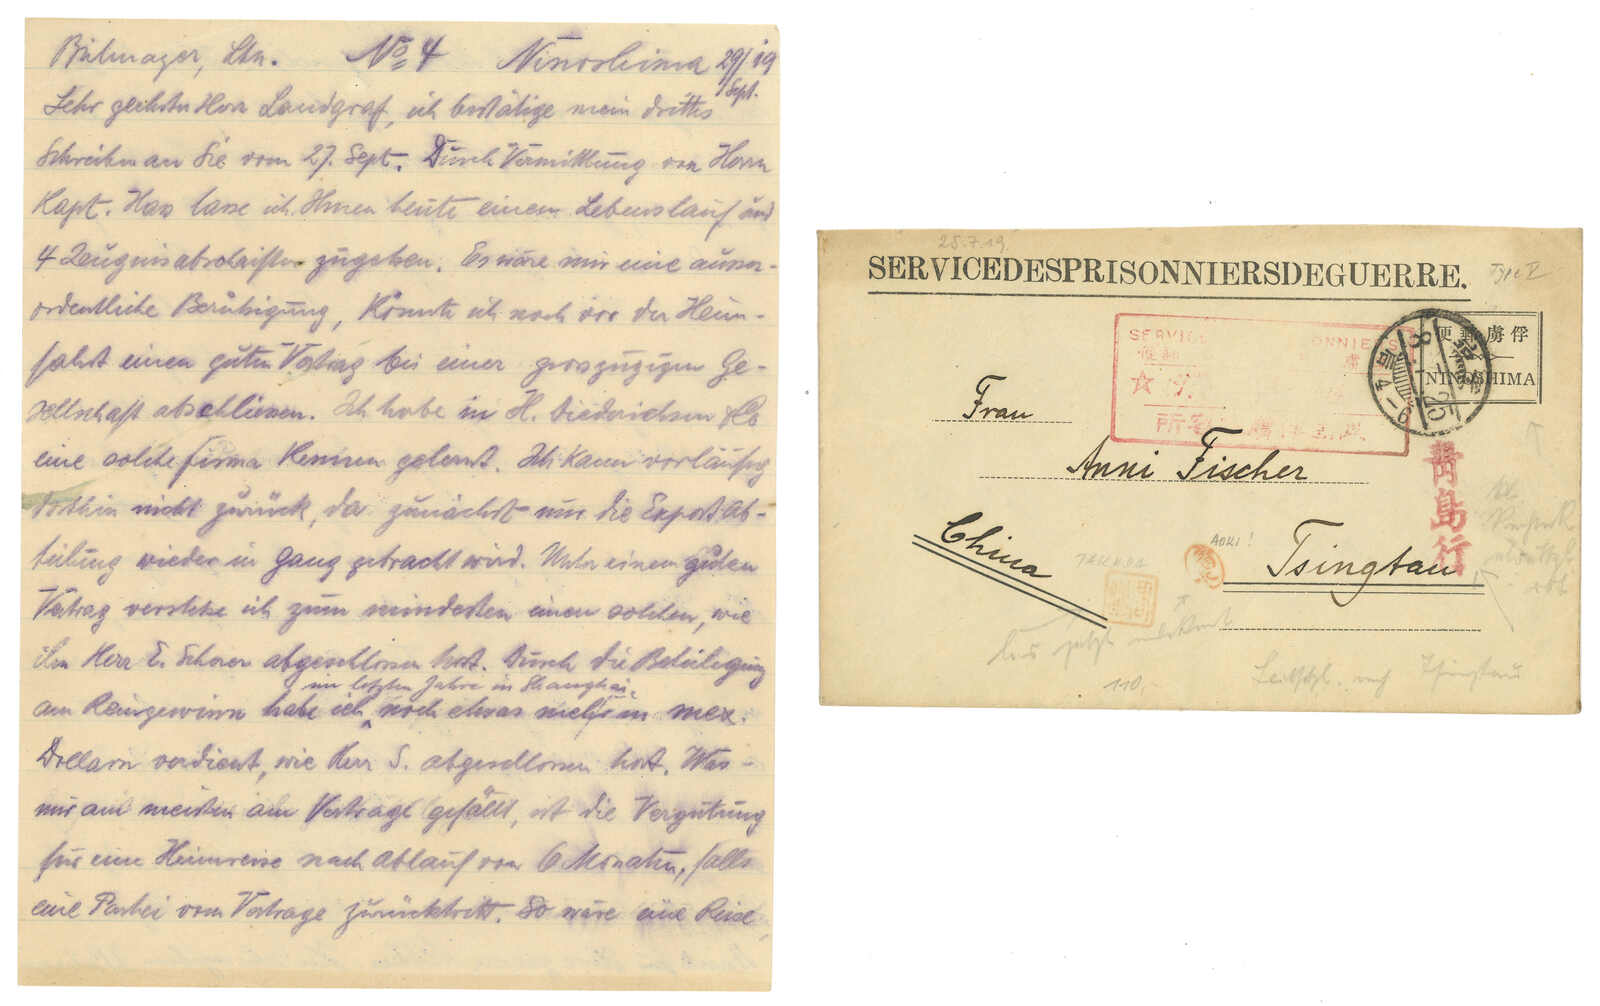 Ltn. No 4 Ninoshima 29/19
Sept.
Sehr geehrter Herr Landgraf, ich bestätige mein drittes
Schreiben an Sie vom 27. Sept. Durch Vermittlung von Herrn
Kapt. Hass lasse ich Ihnen heute einen Lebenslauf und
4 Zeugnisabschriften zugehen. Es wäre mir eine ausser-
ordentliche Beruhigung, könnte ich noch vor der Heim-
fahrt einen guten Vertrag bei einer groszügigen Ge-
sellschaft abschliessen. Ich habe in H. Diederichsen & Co
eine solche Firma kennen gelernt. Ich kann vorläufig
dorthin nicht zurück, da zunächst nur die Export Ab-
teilung wieder in Gang gebracht wird. Unter einem guten
Vertrag verstehe ich zum mindesten einen solchen, wie
ihn Herr E. abgeschlossen hat. Durch die Beteiligung
im letzten Jahre in Shanghai
am Reingewinn habe ich noch etwas mehr in mex.
Dollarn verdient, wie Herr S. abgeschlossen hat. Was
mir am meisten am Vertrage gefällt, ist die Vergütung
für eine Heimreise nach Ablauf von 6 Monaten, falls
eine Partei vom Vertrage zurücktritt. So wäre eine Reise
25.7.19.
SERVICEDESPRISONNIERSDEGUERRE.
Type V
便郵虜俘
NINOSHIMA
SERVICE ONNIERS
Frau
Anni Fischer
青島行
China
AOKI!
Tsingtau
110,-
Tsingtau